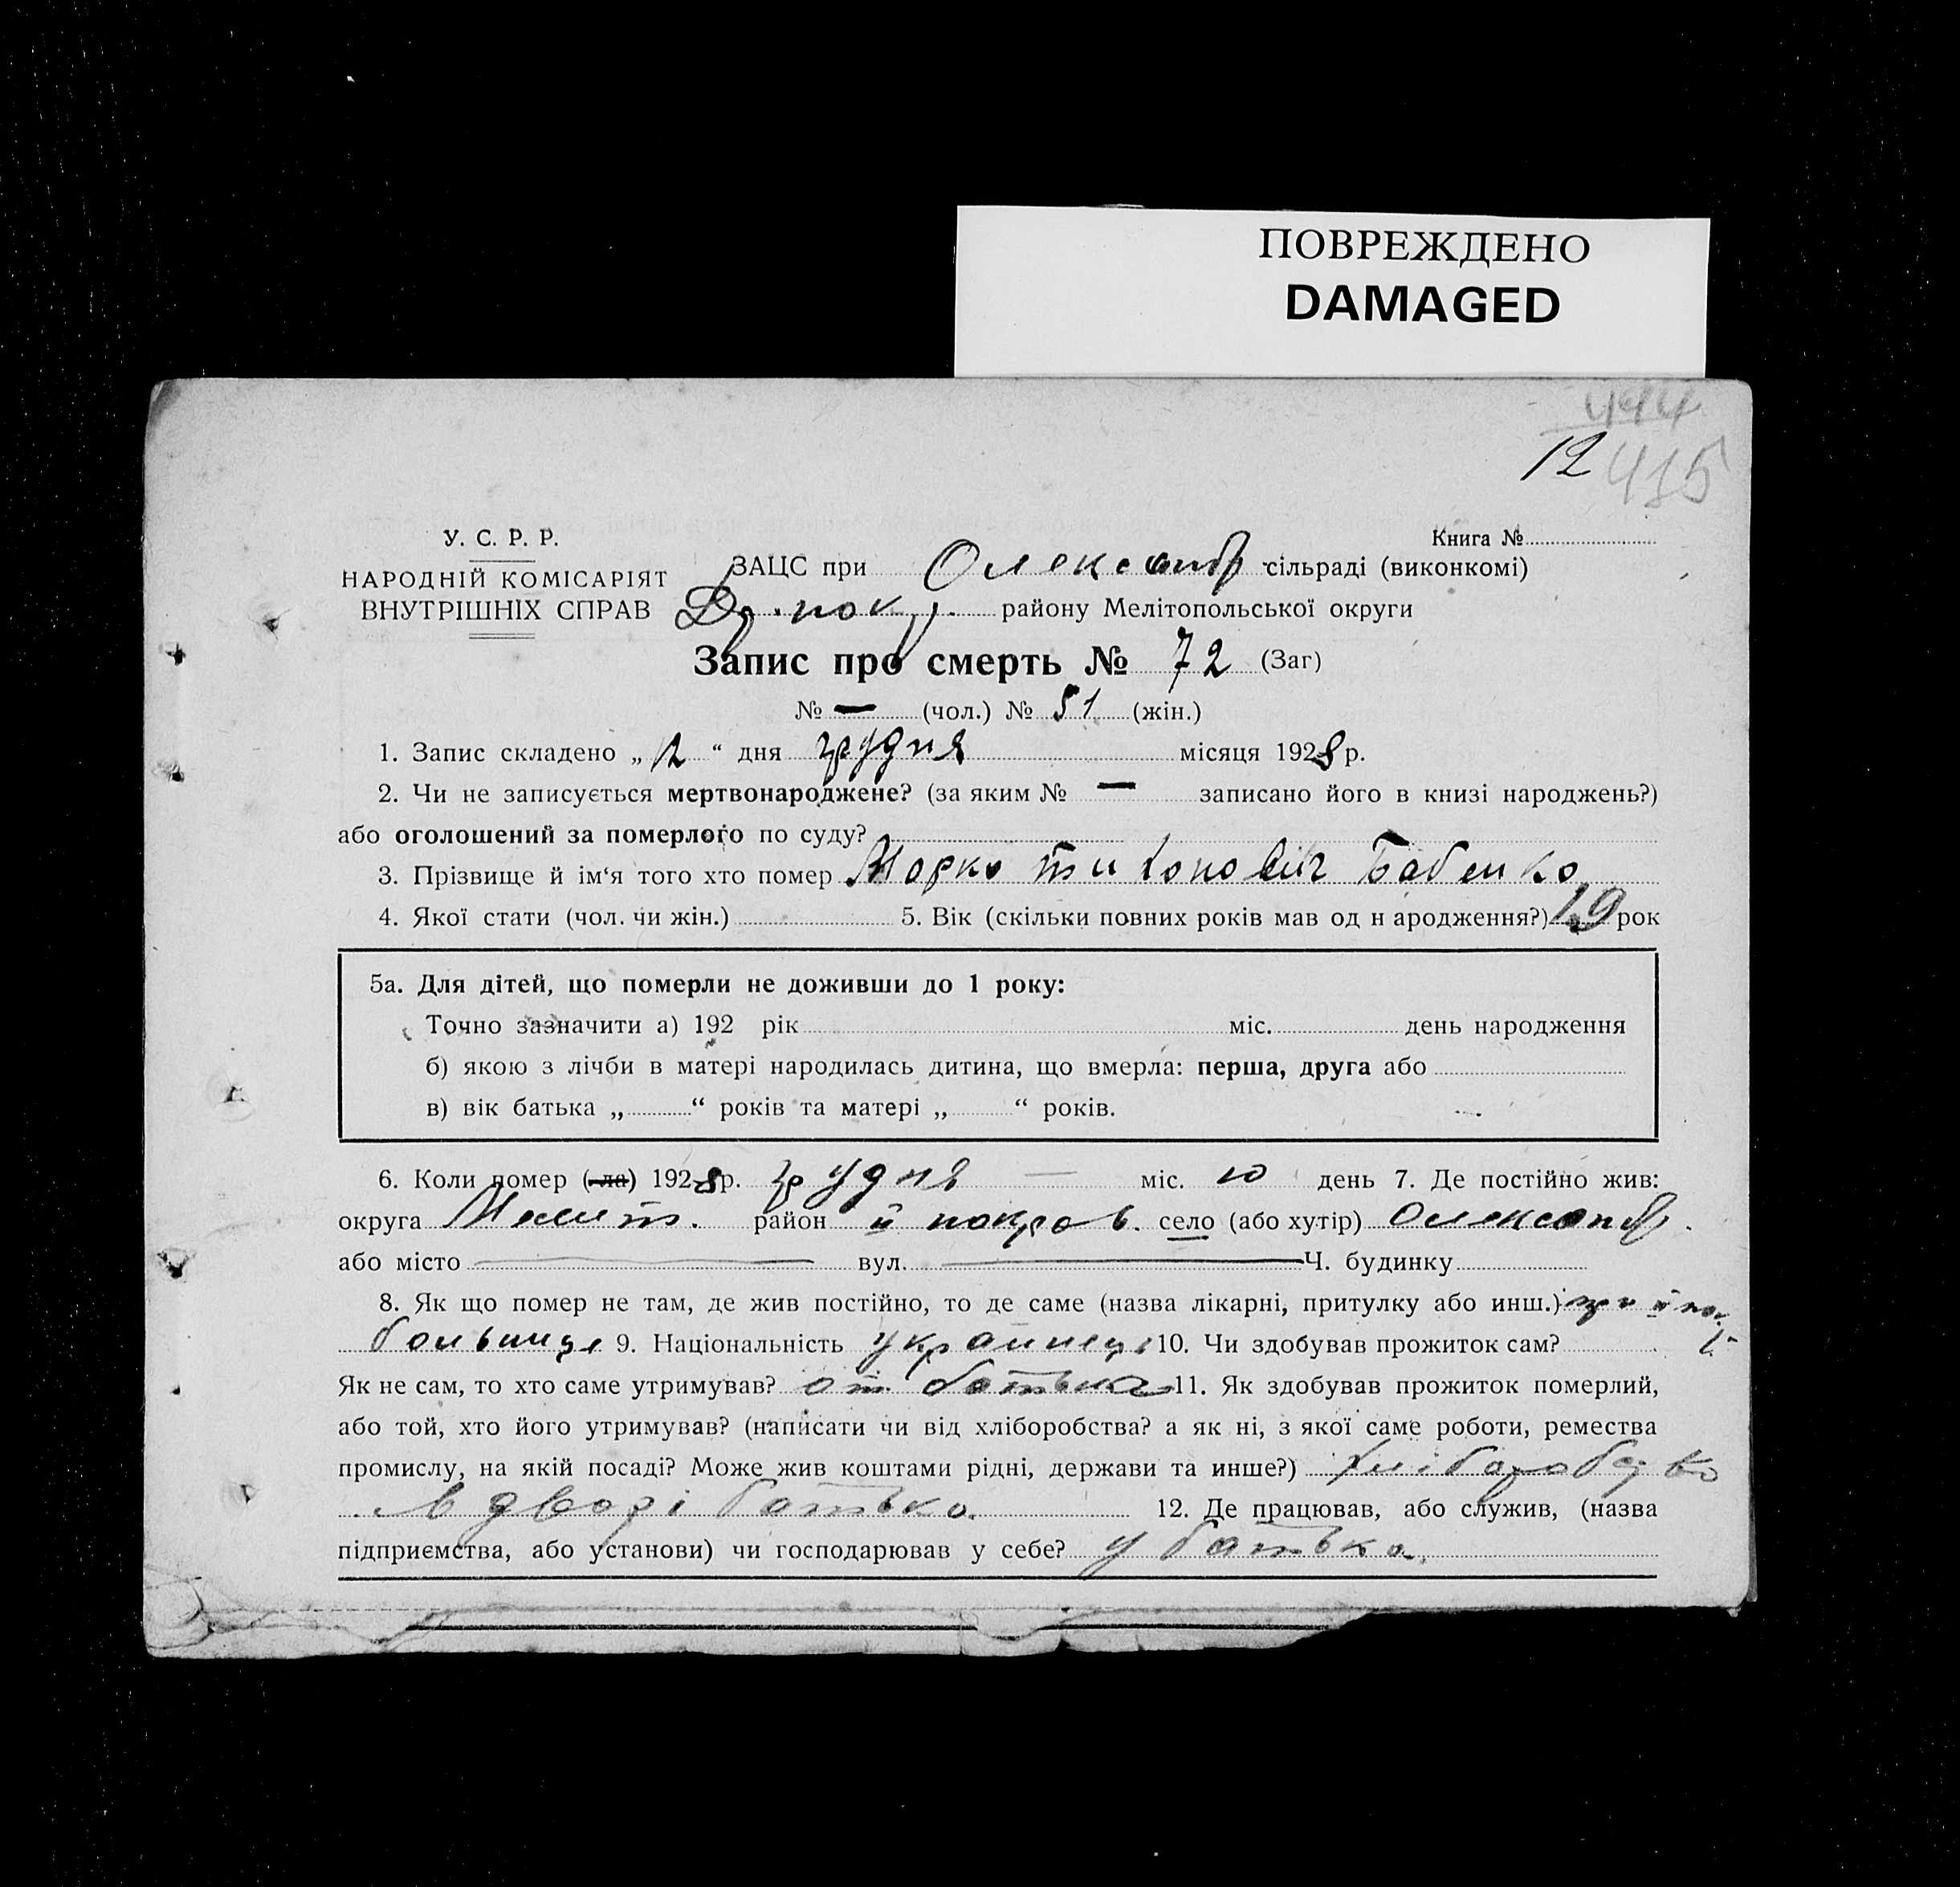 ПОВРЕЖДЕНО
DAMAGED
444
12 415
У. С. Р. Р.
НАРОДНІЙ КОМІСАРІЯТ
ВНУТРІШНІХ СПРАВ
Книга №
ЗАЦС при Олександр сільраді (виконкомі)
району Мелітопольської округи
Запис про смерть № 72 (Заг)
№ — (чол.) № 51 (жін.)
1. Запис складено „12“ дня грудня місяця 1928 р.
2. Чи не записується мертвонароджене? (за яким № — записано його в книзі народжень?)
або оголошений за померлого по суду?
3. Прізвище й ім‘я того хто помер Марко Тихонович Бабенко
4. Якої стати (чол. чи жін.) 5. Вік (скільки повних років мав од н ародження?) 19 рок
5а. Для дітей, що померли не доживши до 1 року:
Точно зазначити а) 192 рік міс. день народження
б) якою з лічби в матері народилась дитина, що вмерла: перша, друга або
в) вік батька „ “ років та матері „ “ років.
6. Коли помер (ла) 1928 р. грудня — міс. 10 день 7. Де постійно жив:
округа Меліт. район й покров. село (або хутір) Олександр.
або місто вул. Ч. будинку
8. Як що помер не там, де жив постійно, то де саме (назва лікарні, притулку або инш.)
больниці 9. Національність українец 10. Чи здобував прожиток сам?
Як не сам, то хто саме утримував? от батька 11. Як здобував прожиток померлий,
або той, хто його утримував? (написати чи від хліборобства? а як ні, з якої саме роботи, ремества
промислу, на якій посаді? Може жив коштами рідні, держави та инше?)
в дворі батька. 12. Де працював, або служив, (назва
підприємства, або установи) чи господарював у себе? у батька.